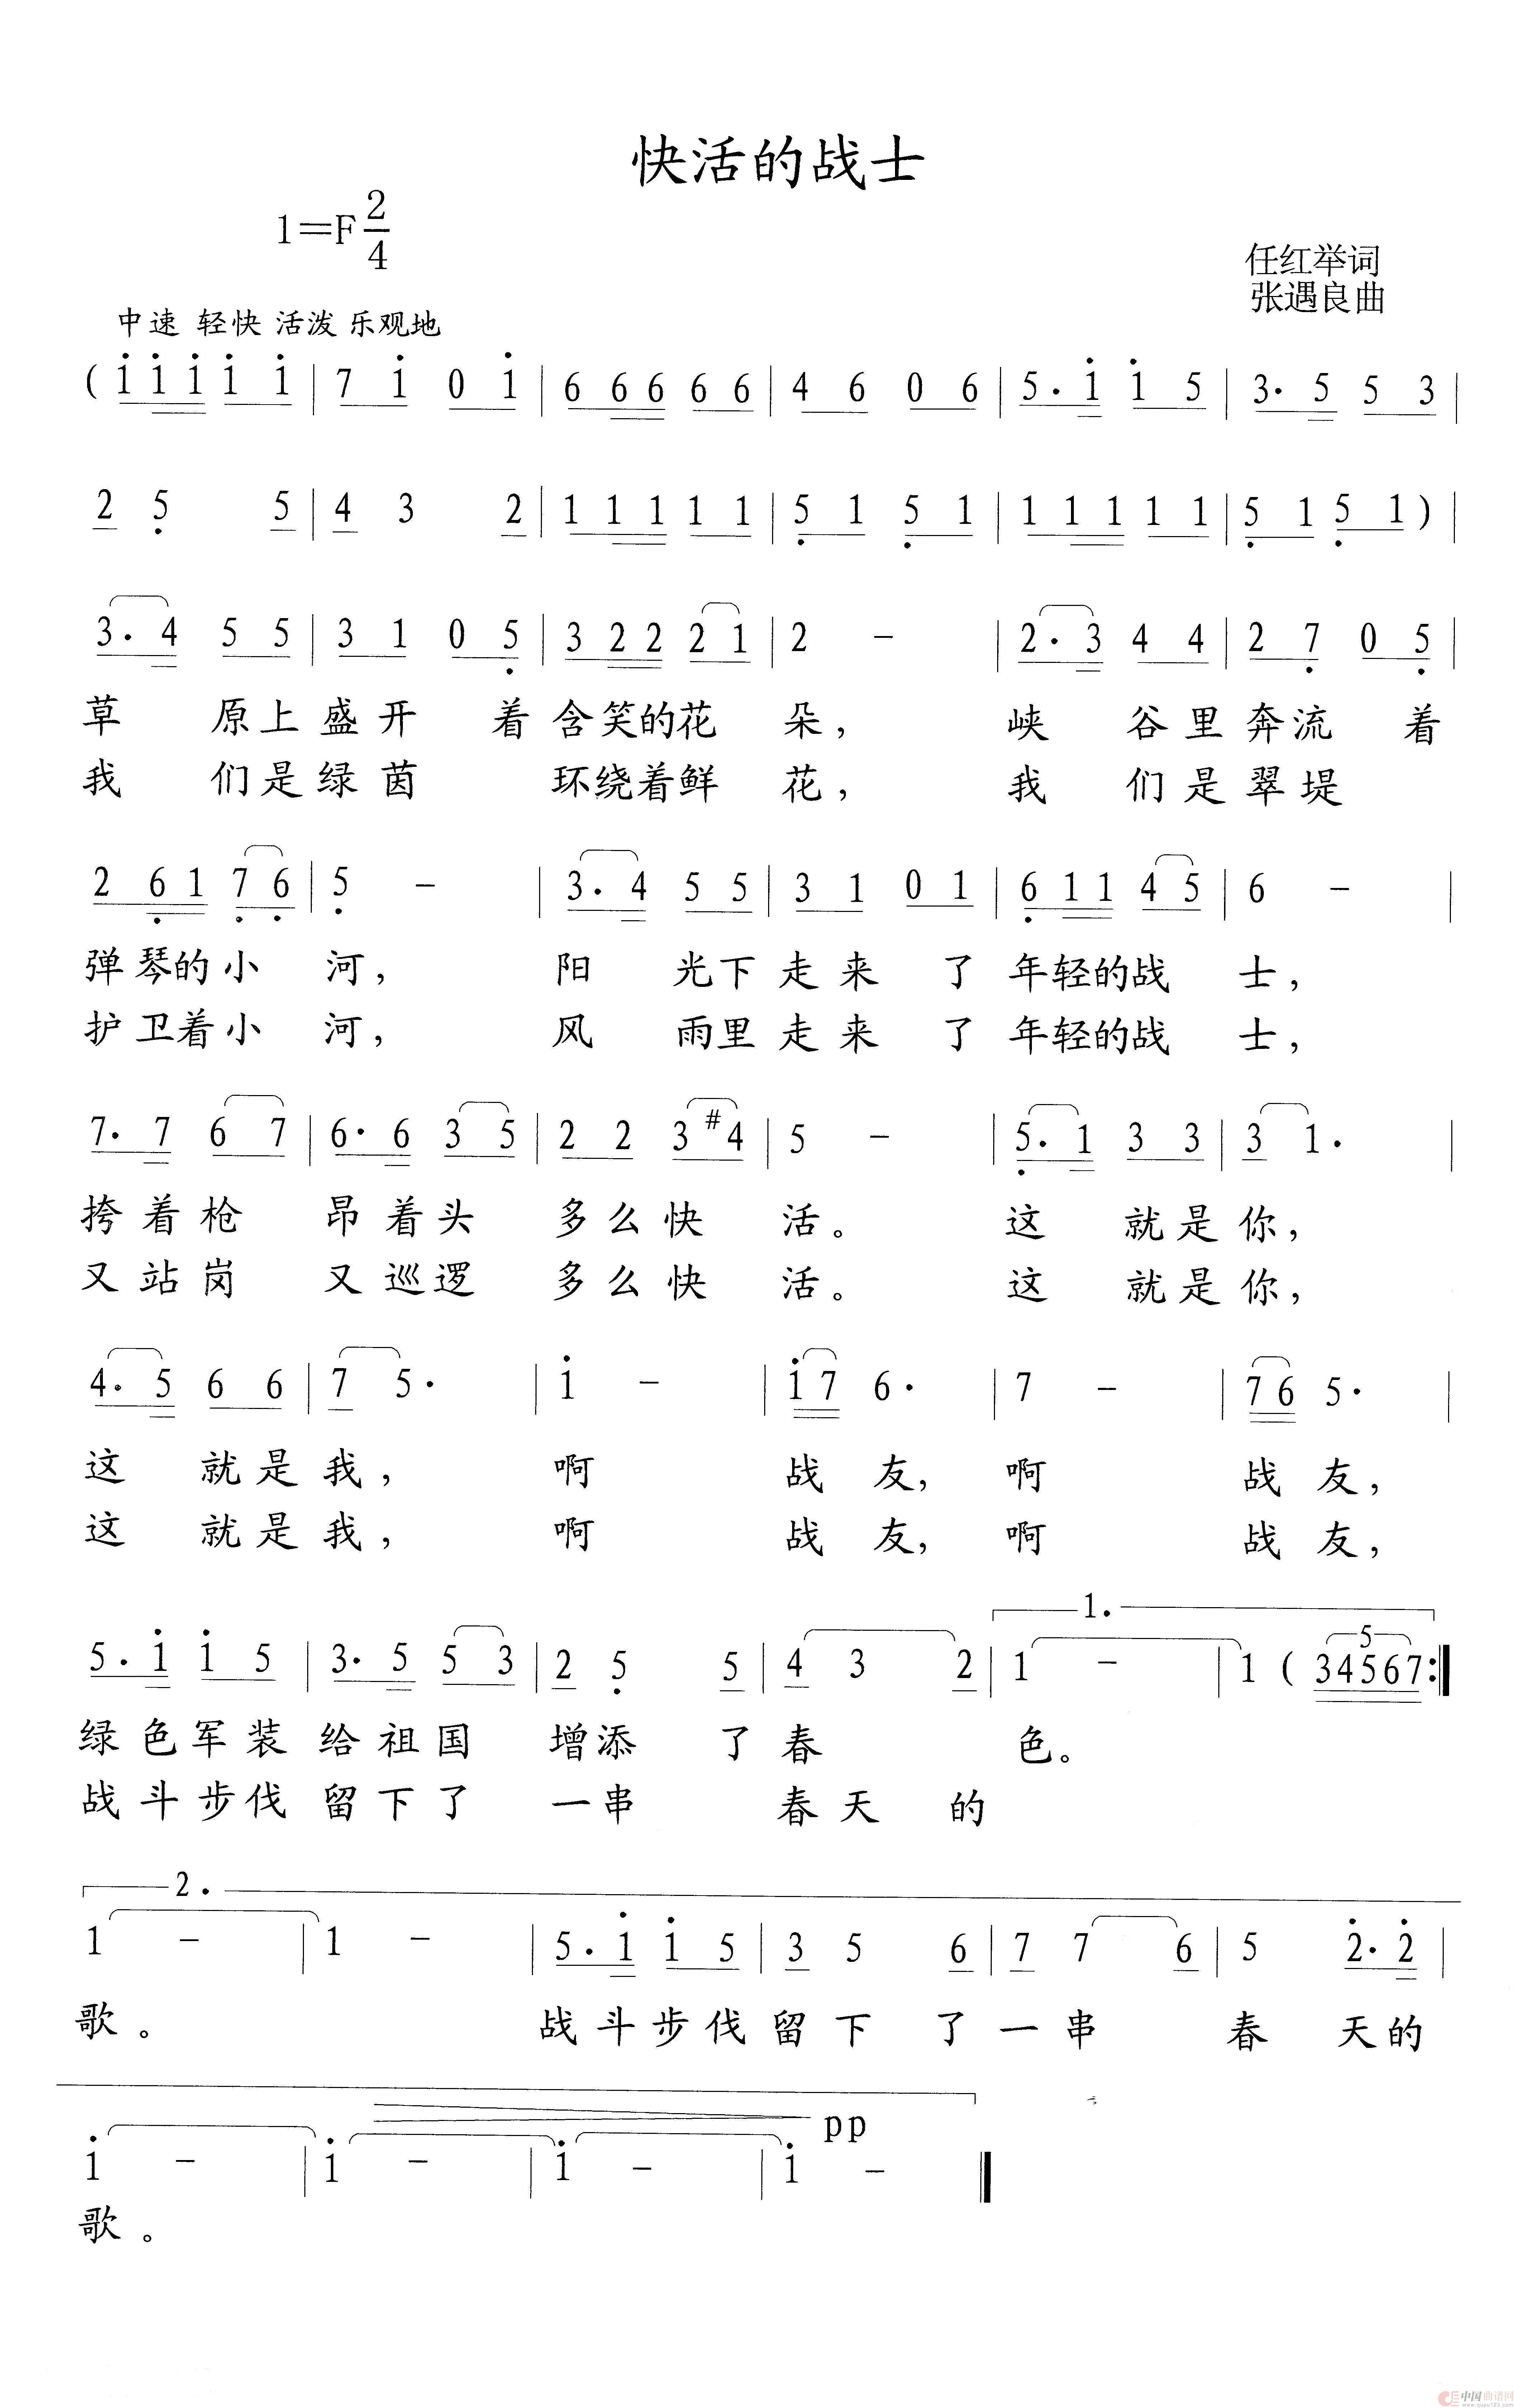 快活的战士
1=F 2/4
任红举词
张遇良曲
中速 轻快 活泼 乐观地
( i i i i i | 7 i 0 i | 6 6 6 6 6 | 4 6 0 6 | 5. i i 5 | 3. 5 5 3 |
2 5 5 | 4 3 2 | 1 1 1 1 1 | 5 1 5 1 | 1 1 1 1 1 | 5 1 5 1 ) |
3. 4 5 5 | 3 1 0 5 | 3 2 2 2 1 | 2 - | 2. 3 4 4 | 2 7 0 5 |
草 原上盛开 着含笑的花 朵, 峡 谷里奔流 着
我 们是绿茵 环绕着鲜 花, 我 们是翠堤
2 6 1 7 6 | 5 - | 3. 4 5 5 | 3 1 0 1 | 6 1 1 4 5 | 6 - |
弹琴的小 河, 阳 光下走来 了年轻的战 士,
护卫着小 河, 风 雨里走来 了年轻的战 士,
7. 7 6 7 | 6. 6 3 5 | 2 2 3 #4 | 5 - | 5. 1 3 3 | 3 1. |
挎着枪 昂着头 多么快 活。 这 就是你,
又站岗 又巡逻 多么快 活。 这 就是你,
4. 5 6 6 | 7 5. | i - | i 7 6. | 7 - | 7 6 5. |
这 就是我, 啊 战友, 啊 战友,
这 就是我, 啊 战友, 啊 战友,
1.
5. i i 5 | 3. 5 5 3 | 2 5 5 | 4 3 2 | 1 - | 1 ( 5 34567 :|
绿色军装给祖国 增添 了春 色。
战斗步伐留下了 一串 春天 的
2.
1 - | 1 - | 5. i i 5 | 3 5 6 | 7 7 6 | 5 2. 2 |
歌。 战斗步伐留下 了一串 春 天的
pp
i - | i - | i - | i - ‖
歌。
中国曲谱网
www.qupu123.com